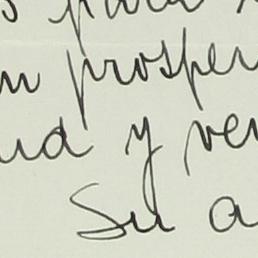 s para
n prosper
ud y ven
Su a